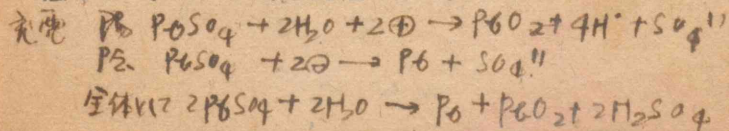 充電 陽 PbSO₄ + 2H₂O + 2⊕ → PbO₂ + 4H˙ + SO₄''
陰 PbSO₄ + 2⊖ → Pb + SO₄''
全体シテ 2PbSO₄ + 2H₂O → Pb + PbO₂ + 2H₂SO₄